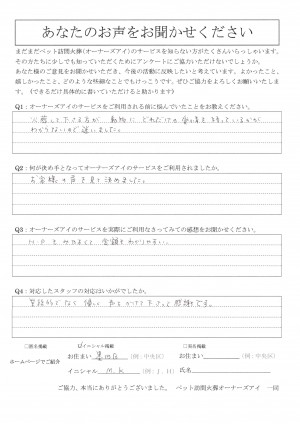 あなたのお声をお聞かせください
まだまだペット訪問火葬(オーナーズアイ)のサービスを知らない方がたくさんいらっしゃいます。
その方たちに少しでも知っていただくためにアンケートにご協力いただけないでしょうか。
あなた様のご意見をお聞かせいただき、今後の活動に反映したいと考えています。よかったこと、
嬉しかったこと、どのような些細なことでもけっこうです。ぜひご協力をよろしくお願いいたします。
(できるだけ具体的に書いていただけると助かります)
Q1：オーナーズアイのサービスをご利用される前に悩んでいたことをお教えください。
火葬して下さる方が、動物に どれだけの
わからないので迷いました。
Q2：何が決め手となってオーナーズアイのサービスをご利用されましたか。
お客様の声を見て決めました。
Q3：オーナーズアイのサービスを実際にご利用なさってみての感想をお聞かせください。
H.P もみやすくて、金額もわかりやすい。
Q4：対応したスタッフの対応はいかがでしたか。
優しく、声もかけて下さって感謝です。
□匿名掲載 ☑イニシャル掲載 □実名掲載
ホームページでご紹介
お住まい 墨田区 (例：中央区) お住まい (例：中央区)
イニシャル M.K (例：J．H) 氏名
ご協力、本当にありがとうございました。 ペット訪問火葬オーナーズアイ 一同